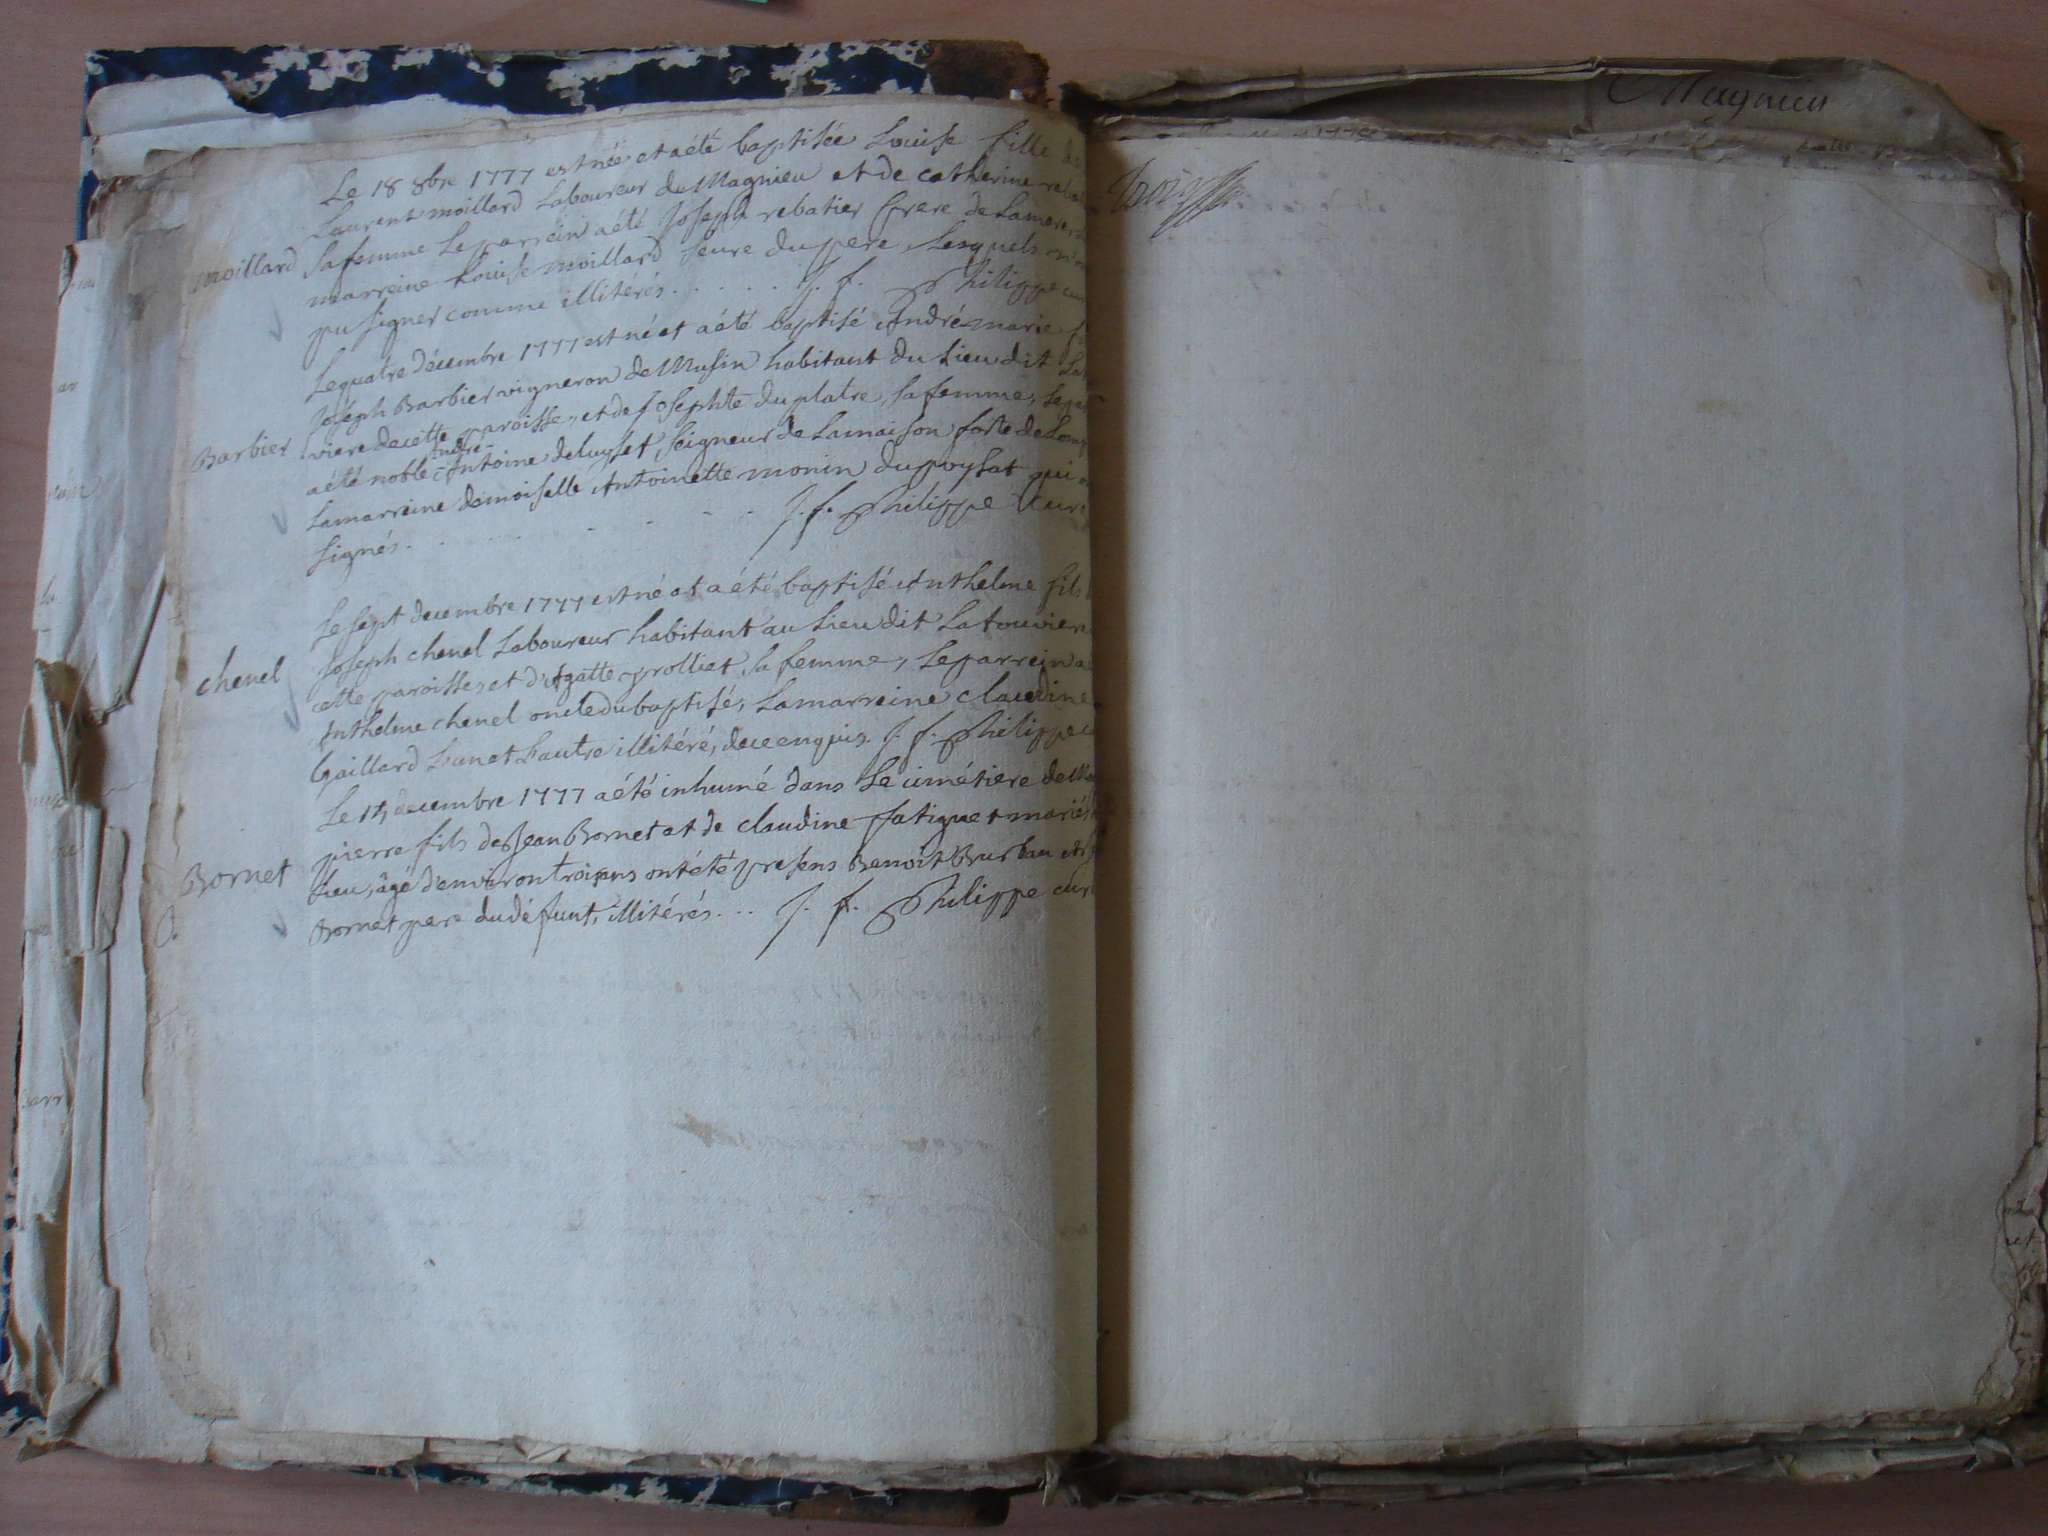 Le 18 8bre 1777 est née et a été baptisée Louise fille de
Laurent moillard Laboureur du Magnieu et de catherine
moillard
sa femme Le parrein a été Joseph rebatier frere de la mere
marreine Louise moillard seure du pere, Lesquels
pu signer comme illitérés . . . . . j. f. Philippe
Le quatre décembre 1777 est né et a été baptisé André marie
Joséph Barbier vigneron de Musin habitant du Lieu dit
Barbier
viere de cette paroisse, et de josephte duplatre, sa femme,
André
a été noble Antoine deluyset, seigneur de La maison forte de
La marreine demoiselle Antoinette monin du poysat qui
signés . . . . . . j. f. Philippe Curé
Le sept decembre 1777 est né et a été baptisé Anthelme fils
Joseph chenel Laboureur habitant au Lieu dit La touviere
chenel
cette paroisse, et d'Agatte prolliet sa femme, Le parrein a
Anthelme chenel oncle du baptisé, La marreine claudine
Gaillard L'un et L'autre illitéré, de ce enquis. j. f. Philippe
Le decembre 1777 a été inhumé dans Le cimétiere de
pierre fils de Jean Bornet et de claudine fatiguet mariés
Bornet
Lieu, âgé d'environ trois ans ont été présens Benoît Burlau
Bornet pere du défunt, illitérés . . . j. f. Philippe curé
Magnieu